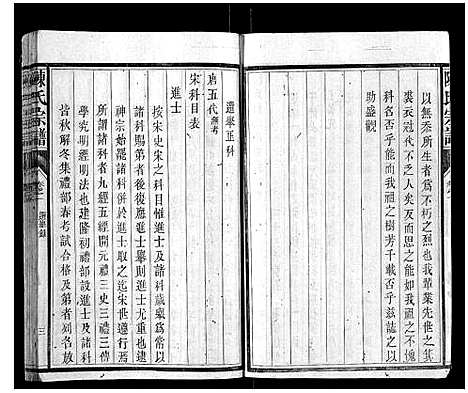 以無忝所生者為不朽之烈也我輩業先世之箕
裘衣冠代不乏人矣反而思之其亦有不愧科名
科名否乎能而我祖之樹芳千載否乎茲誌之以
助盛觀
陳氏宗譜
卷二
選舉正科
唐五代無考
宋科目表
進士
按宋史宋之科目惟進士及諸科歲舉為常以
諸科賜第者後復應進士舉則進士尤重也逮
神宗始罷諸科併於進士迄宋世遵行焉
諸科者九經五經開元禮三史三禮三傳
學究明經明法也建隆初禮部設進士及諸科
皆秋解冬集禮部春考試合格及第者列名放
陳氏宗譜
卷二
選舉錄
三